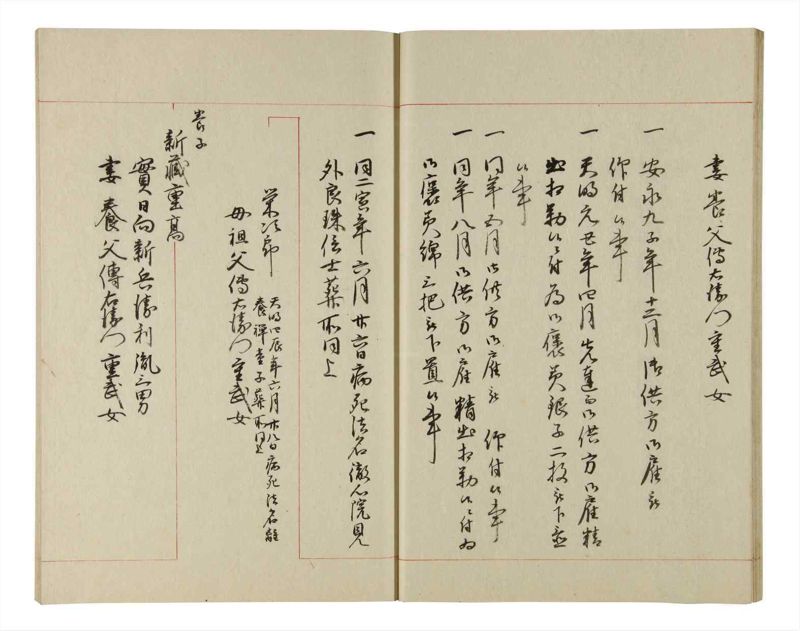 妻養父傳右衛門重武女
一 安永九子年十二月御供方御雇被
仰付候事
一 天明元丑年四月先達而御供方御雇精
出相勤候ニ付為御褒美銀子二枚被下置
候事
一 同年五月御供方御雇被 仰付候事
一 同年八月御供方御雇精出相勤候ニ付為
御褒美綿三把被下置候事
一 同二寅年六月廿六日病死法名徹心院見
外良珠信士葬所同上
栄次郎 天明四辰年六月廿八日病死法名離
養禅童子葬所同上
母祖父傳右衛門重武女
養子
新蔵重高
實日向新兵衛利胤三男
妻養父傳右衛門重武女